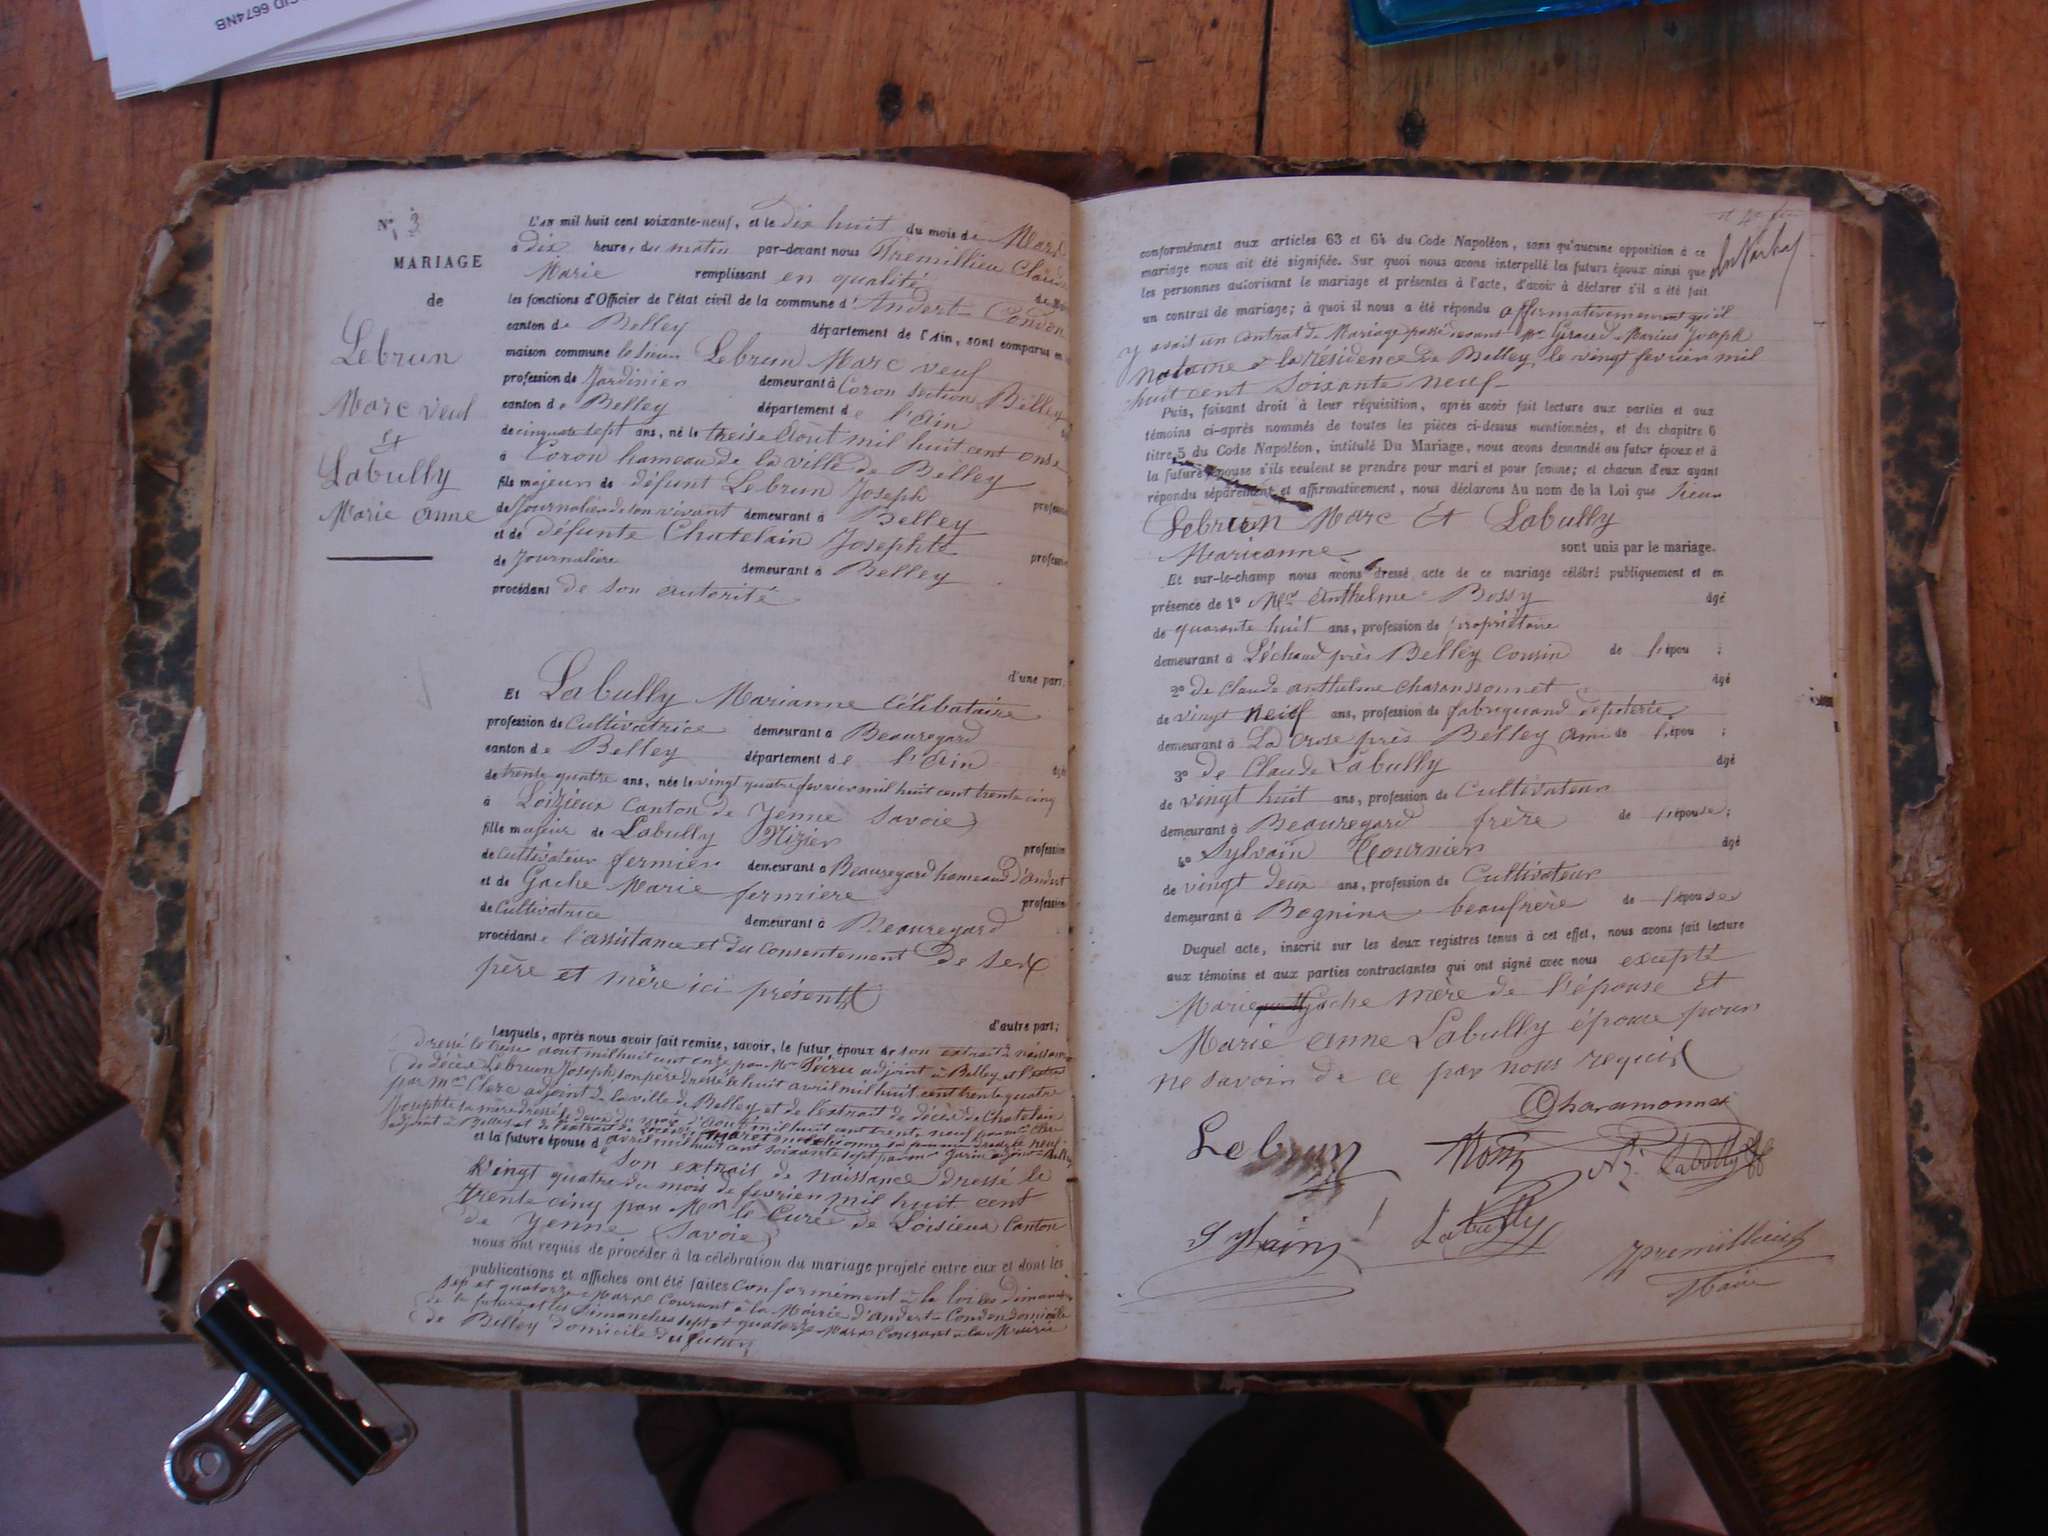 CJD 6674NB
N° 3
MARIAGE
de
Lebrun
Marc veuf
et
Labully
Marie anne
L'an mil huit cent soixante-neuf, et le dix huit du mois de Mars
à dix heure, du matin par-devant nous Premillieu Claude
Marie remplissant en qualité de
les fonctions d'Officier de l'état civil de la commune d'Andert-Condon
canton de Belley département de l'Ain, sont comparus en
maison commune le sieur Lebrun Marc veuf
profession de Jardinier demeurant à Coron section Belley
canton de Belley département de l'ain
de cinquante sept ans, né le treise Aout mil huit cent onse
à Coron hameau de la ville de Belley
fils majeur de défunt Lebrun Joseph profession
de Journalier de son vivant demeurant à Belley
et de défunte Chatelain Josephte profession
de Journalière demeurant à Belley
procédant de son autorité
d'une part,
Et Labully Marianne Célibataire
profession de Cultivatrice demeurant à Beauregard
canton de Belley département de l'Ain âgée
de trente quatre ans, née le vingt quatre fevrier mil huit cent trente cinq
à Loizieux Canton de Yenne Savoie
fille majeur de Labully Nizier profession
de Cultivateur fermier demeurant à Beauregard hameau d'Andert
et de Gache Marie fermiere profession
de Cultivatrice demeurant à Beauregard
procédant e l'assistance et du consentement de ses
père et mère ici présents
d'autre part;
Lesquels, après nous avoir fait remise, savoir, le futur époux de son extrait de naissance
dressé le treise aout mil huit cent onze par Mr adjoint à Belley et l'extrait
de décès Lebrun Joseph son père dressé le huit avril mil huit cent trente quatre
par Mr Clerc adjoint de la ville de Belley et de l'extrait de décès de Chatelain
Josephte sa mère dressé le deux du mois d'aout mil huit cent trente neuf par Mr Clerc
adjoint à Belley et de l'extrait de décès
et la future épouse d avril mil huit cent soixante sept par Mr adjoint
son extrait de naissance dressé le
vingt quatre du mois de fevrier mil huit cent
trente cinq par Mr le Curé de Loisieux Canton
de Yenne (Savoie)
nous ont requis de procéder à la célébration du mariage projeté entre eux et dont les
publications et affiches ont été faites conformément à la loi les dimanches
sept et quatorze Mars Courant à la Mairie d'Andert-Condon domicile
de la future et les dimanches sept et quatorze Mars Courant à la Mairie
de Belley domicile du futur
conformément aux articles 63 et 64 du Code Napoléon, sans qu'aucune opposition à ce
mariage nous ait été signifiée. Sur quoi nous avons interpellé les futurs époux ainsi que
les personnes autorisant le mariage et présentes à l'acte, d'avoir à déclarer s'il a été fait
un contrat de mariage; à quoi il nous a été répondu affirmativement qu'il
y avait un contrat de Mariage passé devant Me Giraud Marius Joseph
notaire à la résidence de Belley, le vingt fevrier mil
huit cent soixante neuf
Puis, faisant droit à leur réquisition, après avoir fait lecture aux parties et aux
témoins ci-après nommés de toutes les pièces ci-dessus mentionnées, et du chapitre 6
titre 5 du Code Napoléon, intitulé Du Mariage, nous avons demandé au futur époux et à
la future épouse s'ils veulent se prendre pour mari et pour femme; et chacun d'eux ayant
répondu séparément et affirmativement, nous déclarons Au nom de la Loi que sieur
Lebrun Marc et Labully
Marieanne sont unis par le mariage.
Et sur-le-champ nous avons dressé acte de ce mariage célébré publiquement et en
présence de 1° Mr Anthelme Bossy âgé
de quarante huit ans, profession de propriétaire
demeurant à Léchaud près Belley Cousin de l'épou ;
2° de Claude anthelme Charanssonnet âgé
de vingt neuf ans, profession de fabriquand de poterie
demeurant à La Crose près Belley ami de l'épou ;
3° de Claude Labully âgé
de vingt huit ans, profession de Cultivateur
demeurant à Beauregard frère de l'épouse ;
4° Sylvain Tournier âgé
de vingt deux ans, profession de Cultivateur
demeurant à Bognine beaufrère de l'épouse
Duquel acte, inscrit sur les deux registres tenus à cet effet, nous avons fait lecture
aux témoins et aux parties contractantes qui ont signé avec nous excepté
Marie Gache mère de l'épouse et
Marie Anne Labully épouse pour
ne savoir de ce par nous requis
Lebrun
Nz. Labully
Sylvain
Labully
Premillieu
Maire